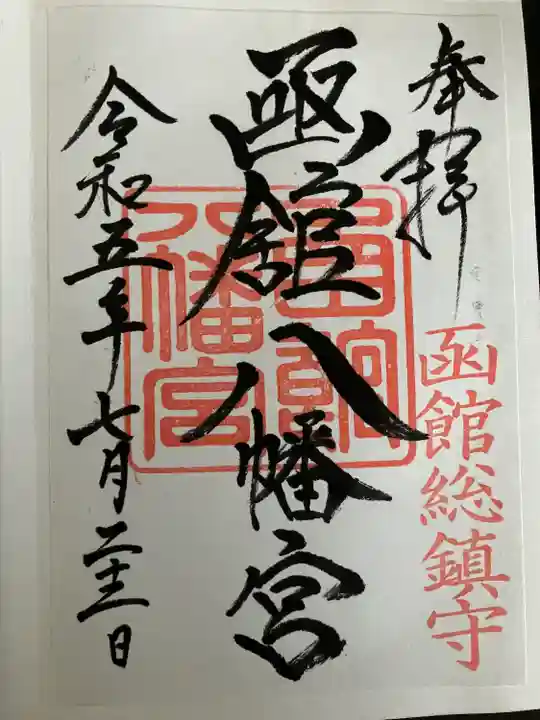 奉拝
函館総鎮守
函館八幡宮
函館
八幡宮
令和五年七月二十一日